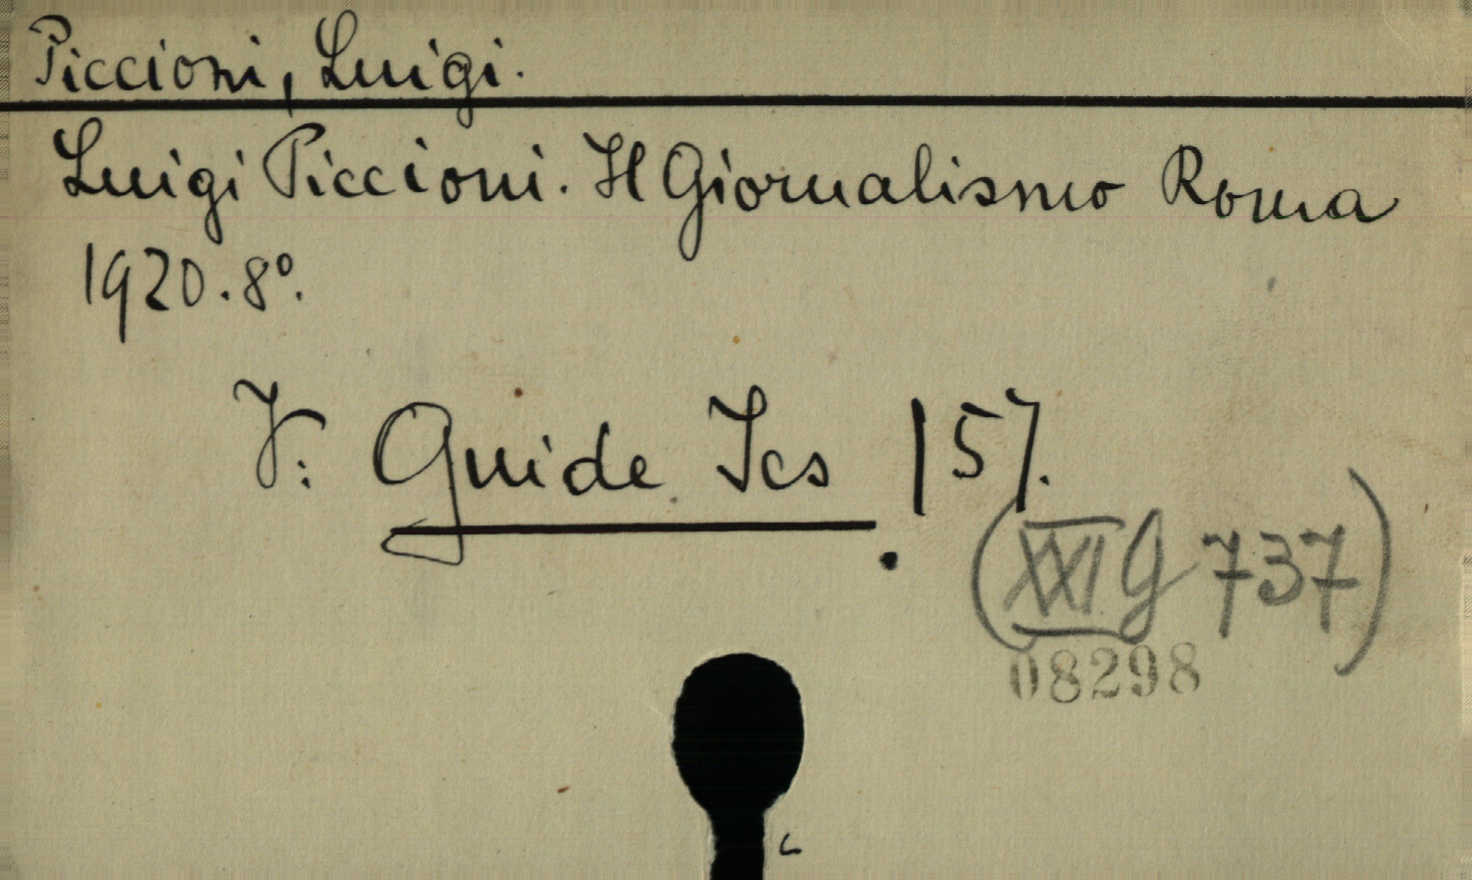 Piccioni, Luigi.
Luigi Piccioni. Il Giornalismo Roma
1920. 8°.
V: Guide Ics 157.
(XXI G 737)
08298